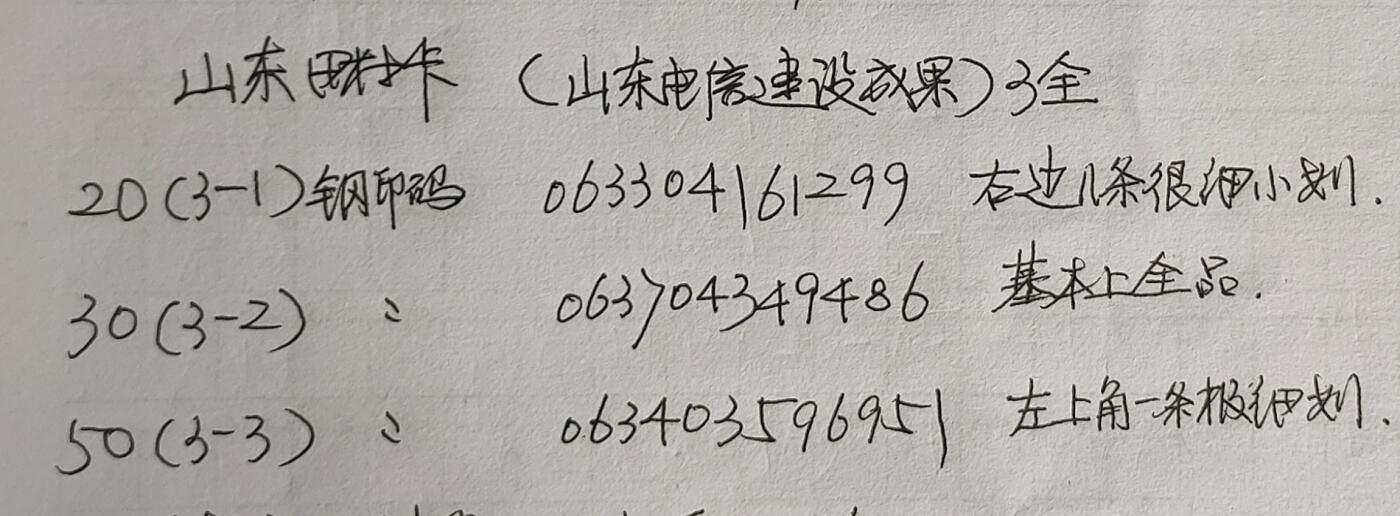 山东田村卡(山东电信建设成果)3全
20(3-1)钢印码 063304161299 右边几条很细小划.
30(3-2) 〃 063704349486 基本上全品.
50(3-3) 〃 063403596951 左上角一条极细划.